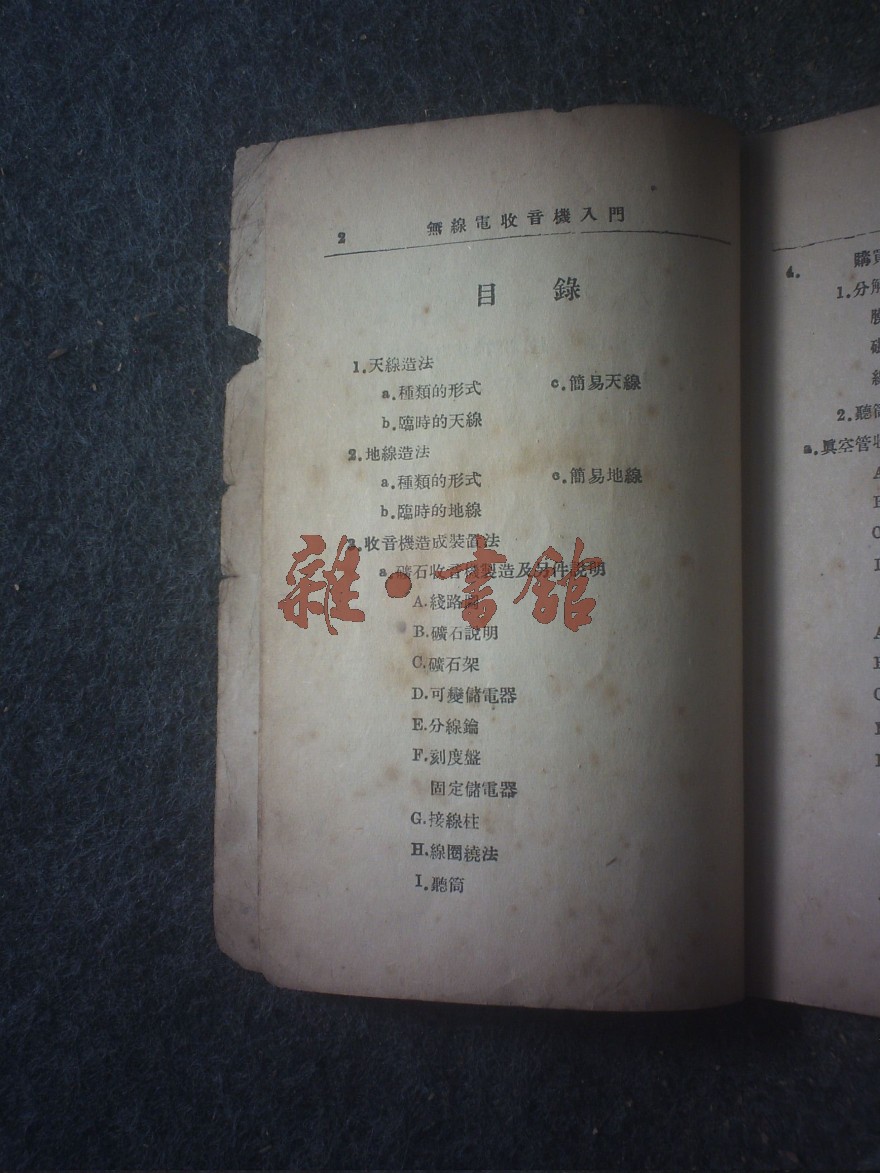 2 無線電收音機入門
目 錄
1.天線造法
a.種類的形式 c.簡易天線
b.臨時的天線
2.地線造法
a.種類的形式 c.簡易地線
b.臨時的地線
3.收音機造成裝置法
a.礦石收音機製造及另件說明
A.綫路圖
B.礦石說明
C.礦石架
D.可變儲電器
E.分線鑰
F.刻度盤
固定儲電器
G.接線柱
H.線圈繞法
I.聽筒
雜·書館
4. 購買
1.分解
2.聽筒
a.眞空管收